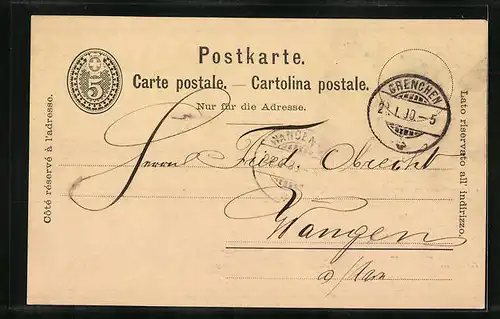 Postkarte.
Carte postale. — Cartolina postale.
Nur für die Adresse.
5
GRENCHEN
Côté réservé à l'adresse.
Lato riservato all' indirizzo.
WANGEN
Herrn Fried Obrecht
Wangen
a/Aar